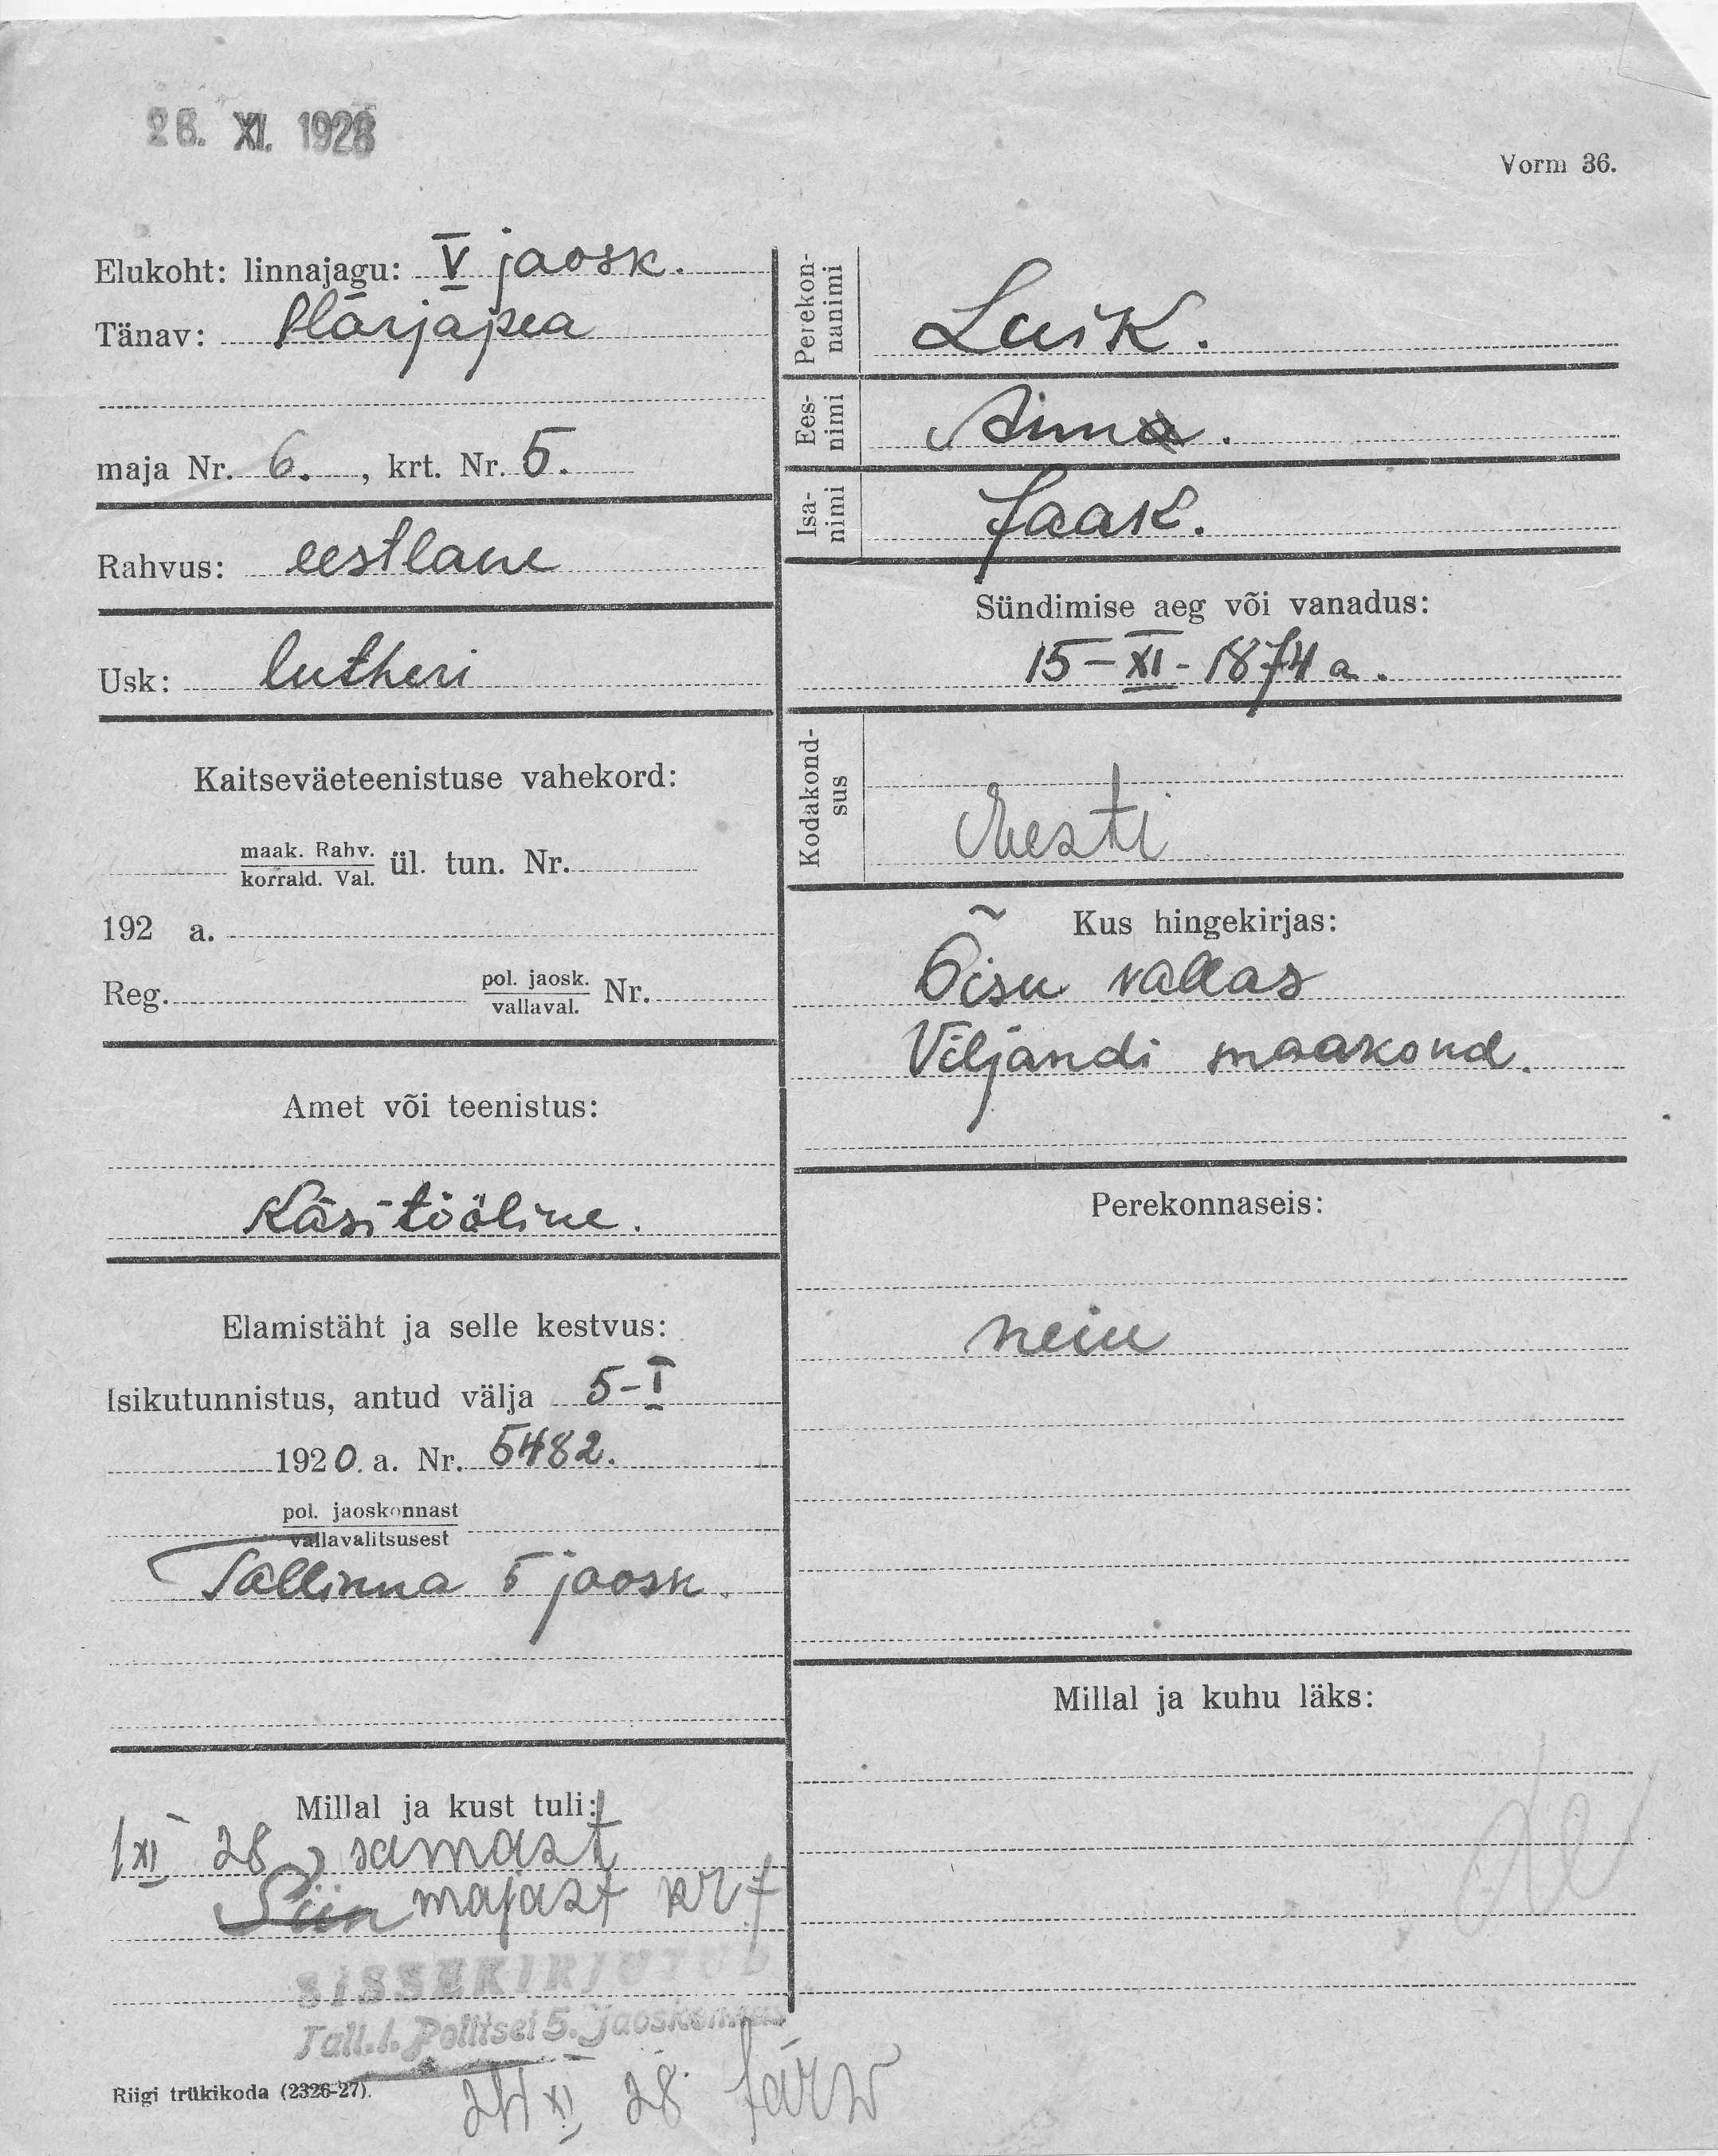 26. XI. 1928
Vorm 36.
Elukoht: linnajagu: V jaosk.
Tänav: Härjapea
maja Nr. 6., krt. Nr. 5.
Rahvus: eestlane
Usk: lutheri
Kaitseväeteenistuse vahekord:
maak. Rahv.
korrald. Val. ül. tun. Nr.
192 a.
Reg. pol. jaosk.
vallaval. Nr.
Amet või teenistus:
Käsitööline.
Elamistäht ja selle kestvus:
Isikutunnistus, antud välja 5-I
1920. a. Nr. 5482.
pol. jaoskonnast
vallavalitsusest
Tallinna 5 jaosk.
Millal ja kust tuli:
1 XI 28 samast
Siin majast kr 7
SISSEKIRJUTUD
Tall.l. Politsei 5. jaoskonnas
24 XI 28 Järw
Riigi trükikoda (2326-27).
Perekon-
nanimi
Luik.
Ees-
nimi
Anna.
Isa-
nimi
Jaak.
Sündimise aeg või vanadus:
15-XI-1874 a.
Kodakond-
sus
Eesti
Kus hingekirjas:
Õisu vallas
Viljandi maakond.
Perekonnaseis:
neiu
Millal ja kuhu läks: